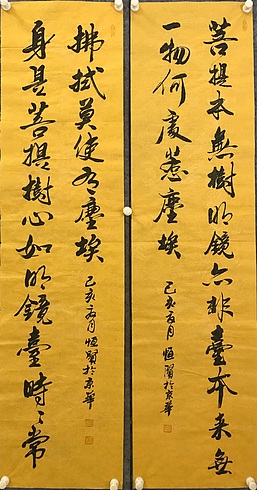 菩提本無樹明鏡亦非臺本来無
一物何處惹塵埃
己亥夏月恒賢於京華
身是菩提樹心如明鏡臺時〻常
拂拭莫使有塵埃
己亥夏月恒賢於京華